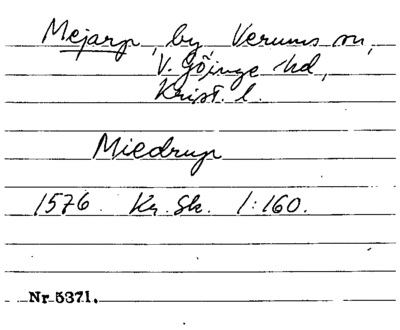 Mejarp, by, Verums sn,
V. Göinge hd,
Krist. l.
Miedrup
1576. Kr. Sk. 1:160.
Nr 5371.